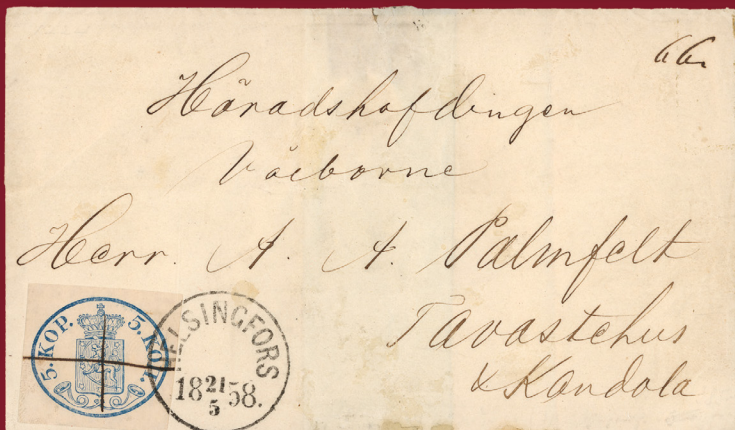 66.
Häradshöfdingen
Välborne
Herr. A. A. Palmfelt
Tavastehus
& Kandola
5. KOP. 5. KOP.
HELSINGFORS
18 21/5 58.